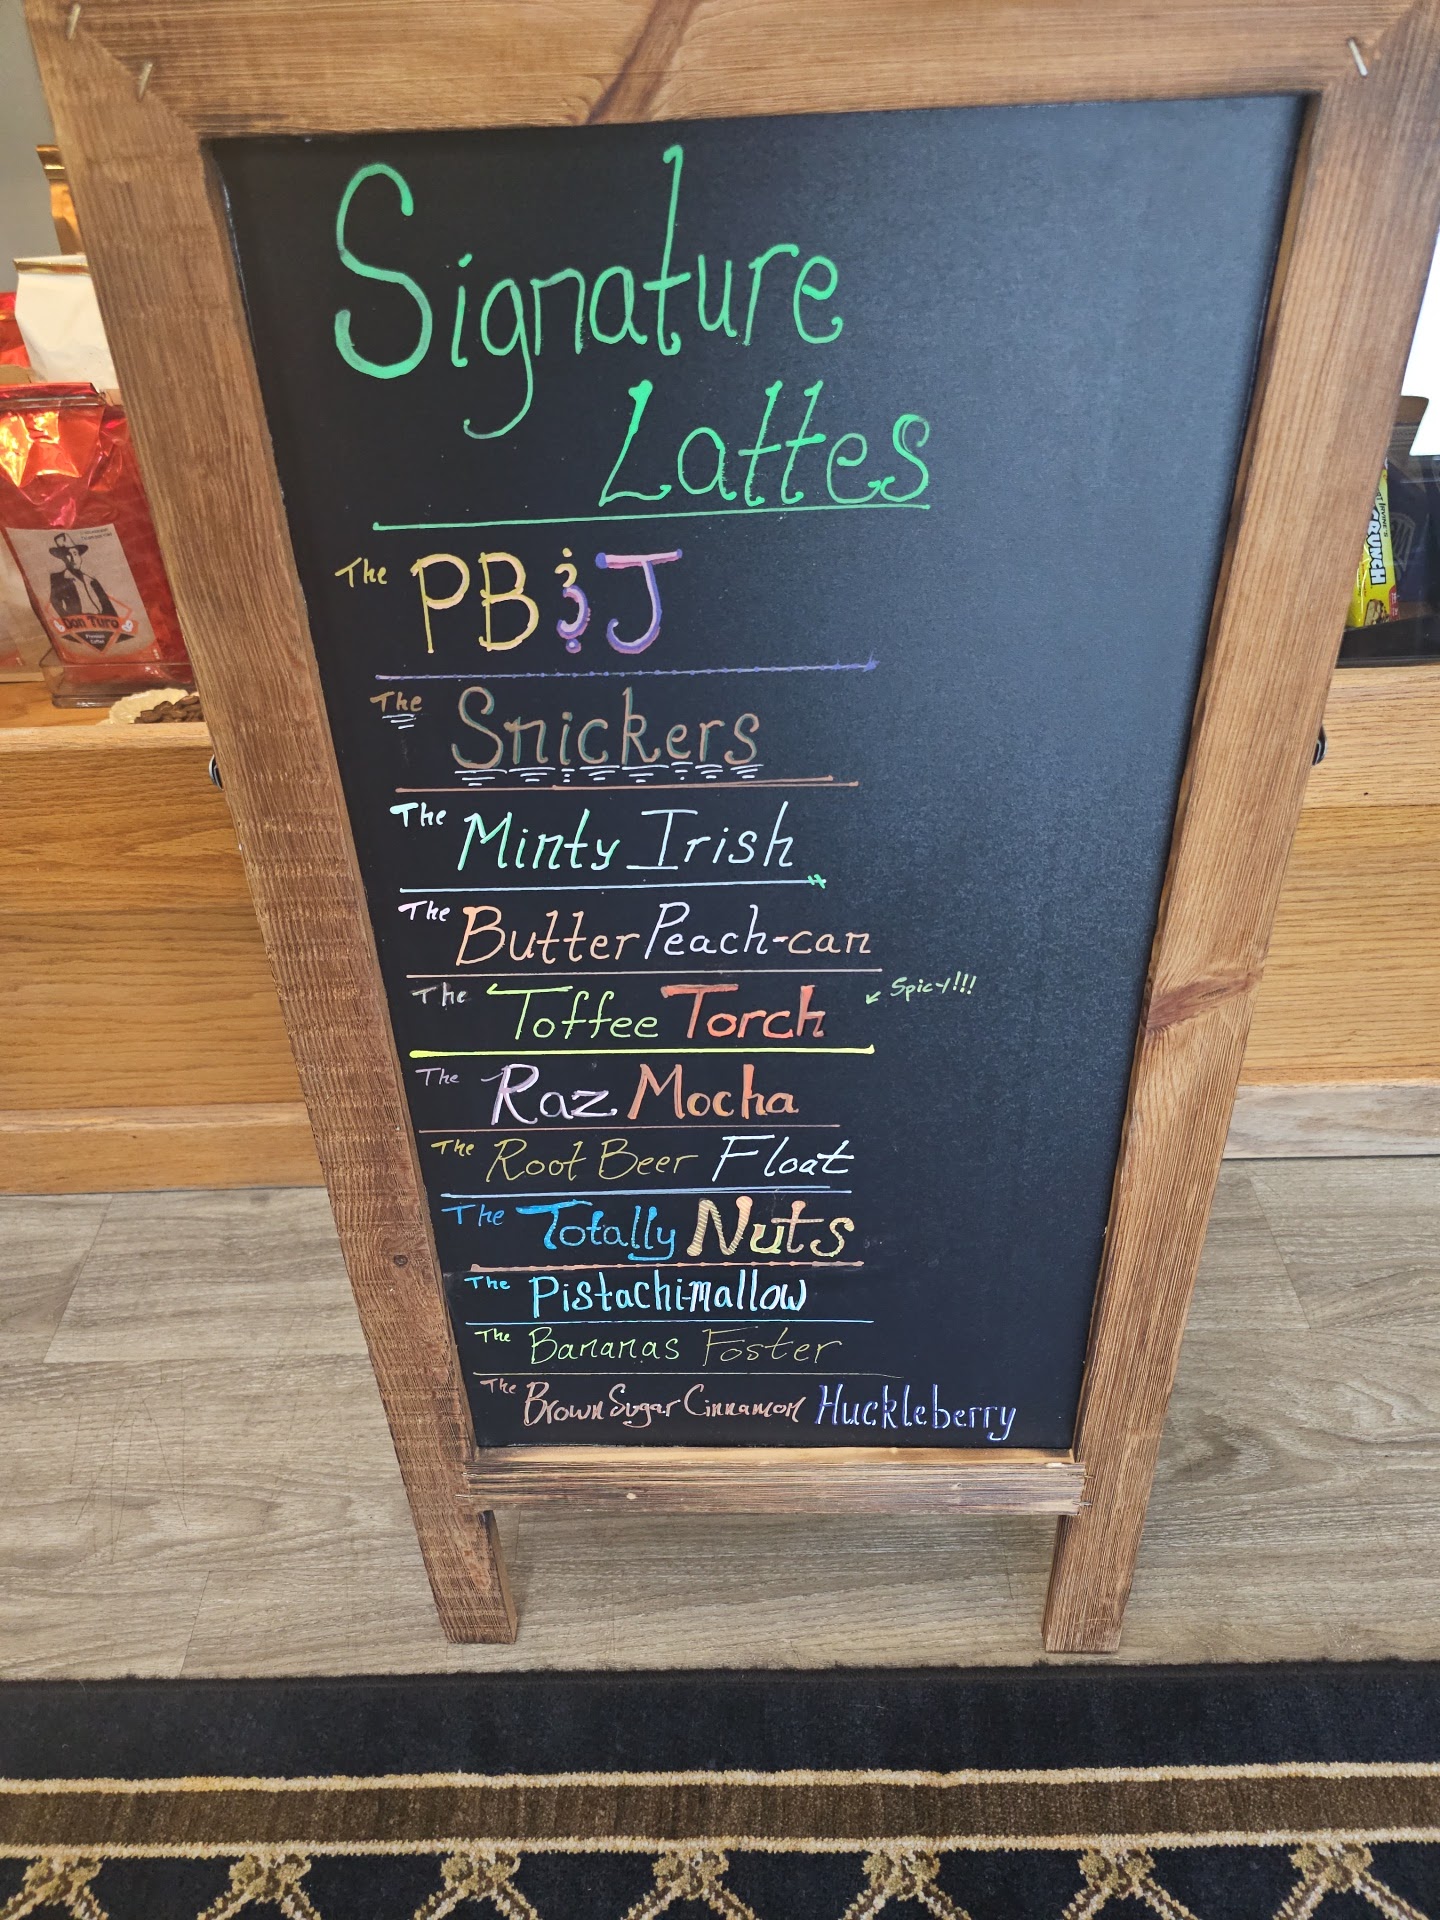 Signature
Lattes
The PB&J
The Snickers
The Minty Irish
The Butter Peach-can
The Toffee Torch
Spicy!!!
The Raz Mocha
The Root Beer Float
The Totally Nuts
The Pistachi-mallow
The Bananas Foster
The Brown Sugar Cinnamon Huckleberry
Don Turo
Premium
Coffee
CRUNCH